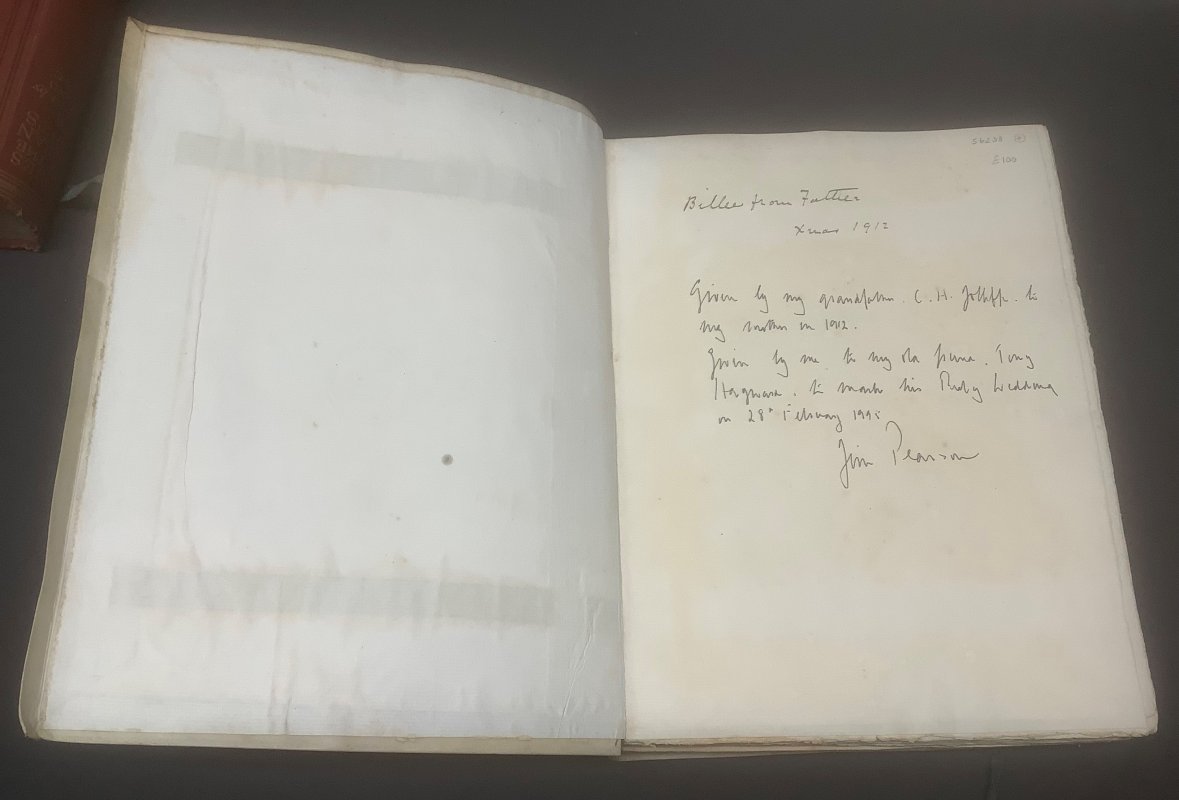 £100
Billee from Father
Xmas 1912
Given by my grandfather. C. H. Jolliffe. to
my mother in 1912.
Given by me to my old friend. Tony
to mark his Ruby Wedding
on 28th February 1995
Jim Pearson